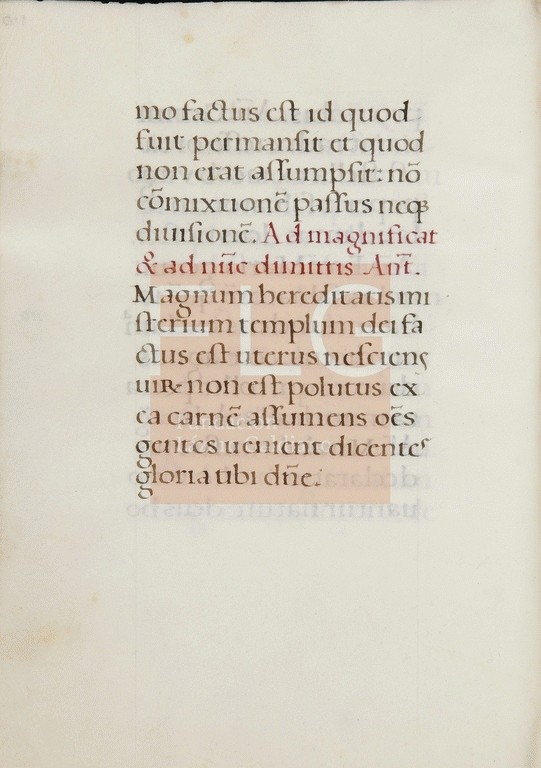 mo factus est id quod
fuit permansit et quod
non erat assumpsit: nō
cōmixtionē passus neqꝫ
diuisionē. Ad magnificat
& ad nūc dimittis Anť.
Magnum hereditatis mi
sterium templum dei fa
ctus est uterus nesciens
uiꝝ non est polutus ex
ea carnē assumens oēs
gentes uenient dicentes
gloria tibi dn̄e.
FLG